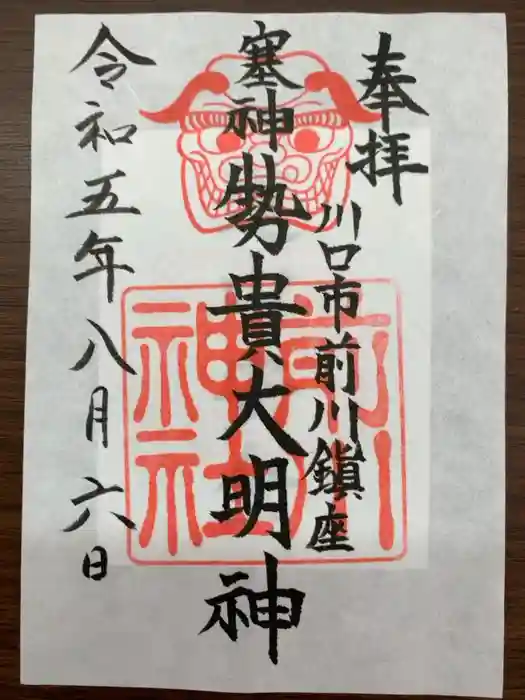 奉拝
川口市前川鎮座
塞神勢貴大明神
令和五年八月六日
前川神社